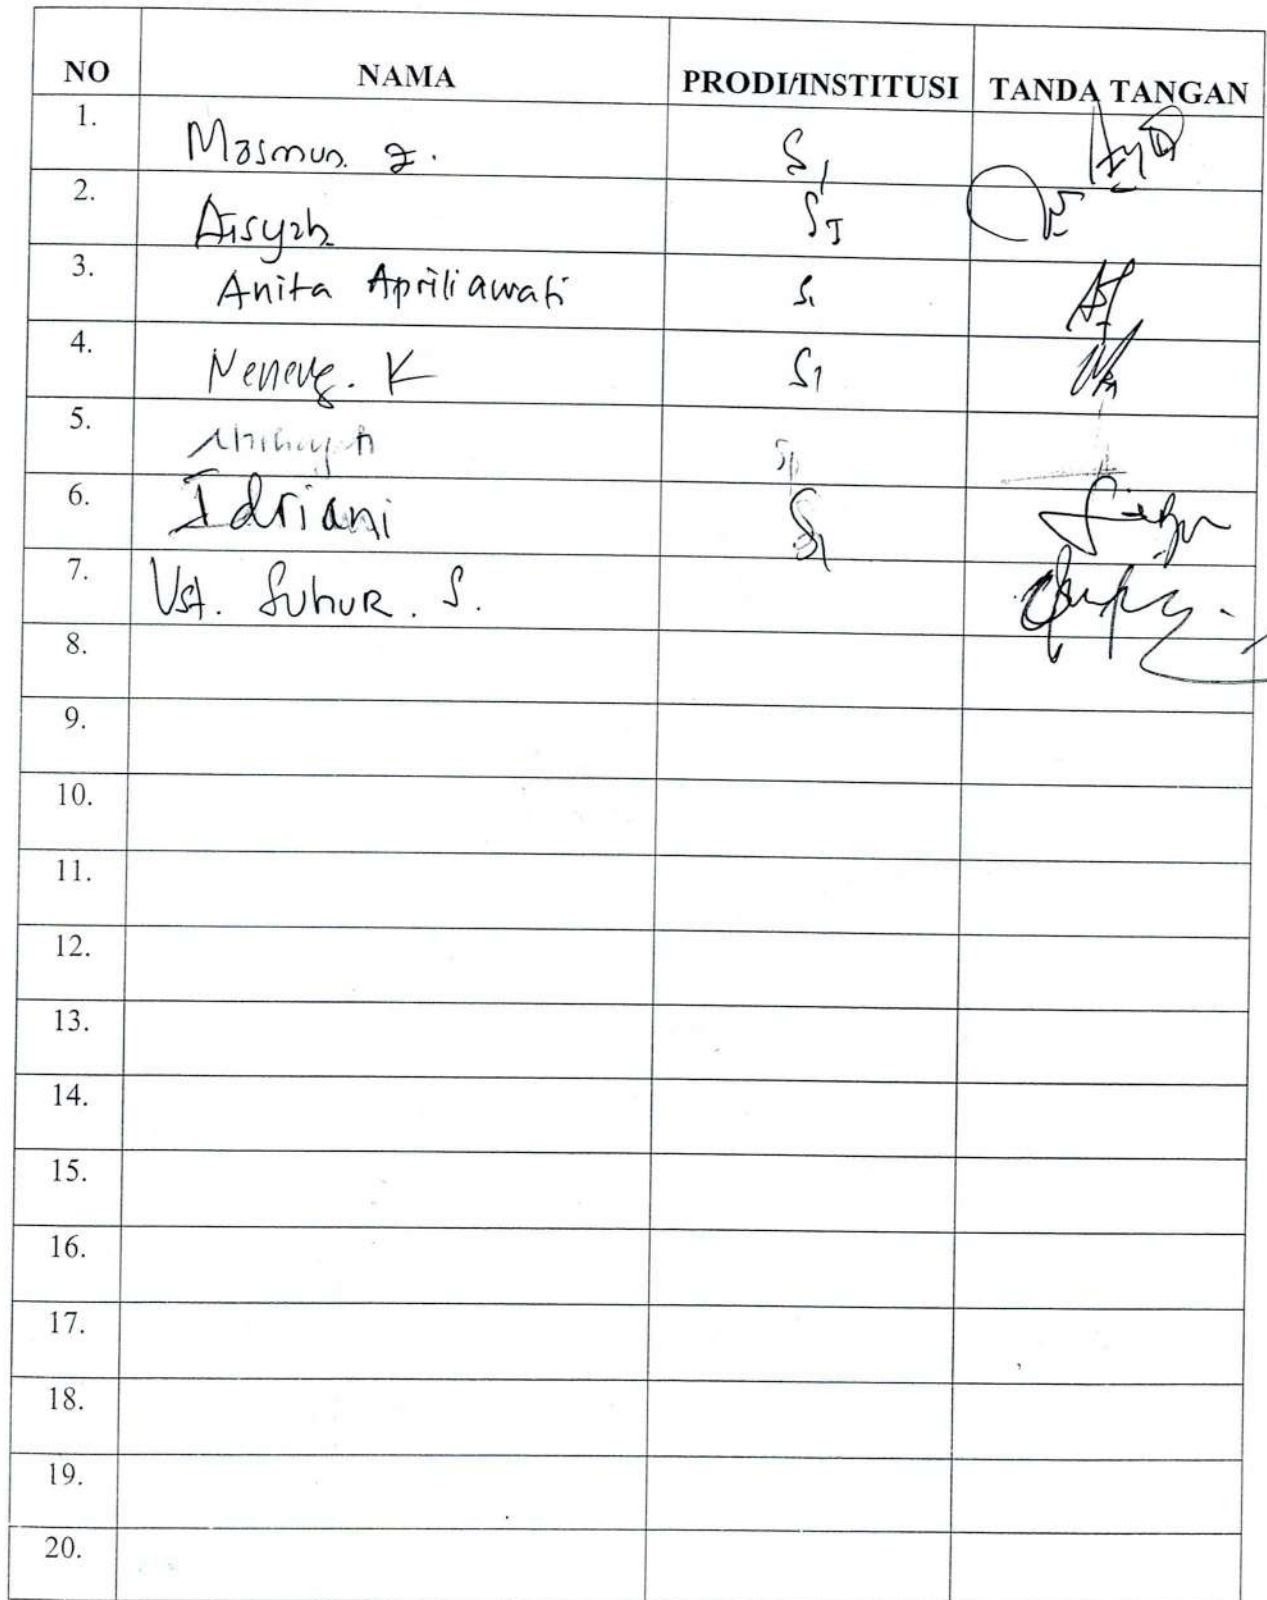 NO NAMA PRODI/INSTITUSI TANDA TANGAN
1. Masmun z. S1
2. Aisyah S1
3. Anita Apriliawati S1
4. Neneng. K S1
5.
6. Idriani S1
7. Ust. Suhur. S.
8.
9.
10.
11.
12.
13.
14.
15.
16.
17.
18.
19.
20.